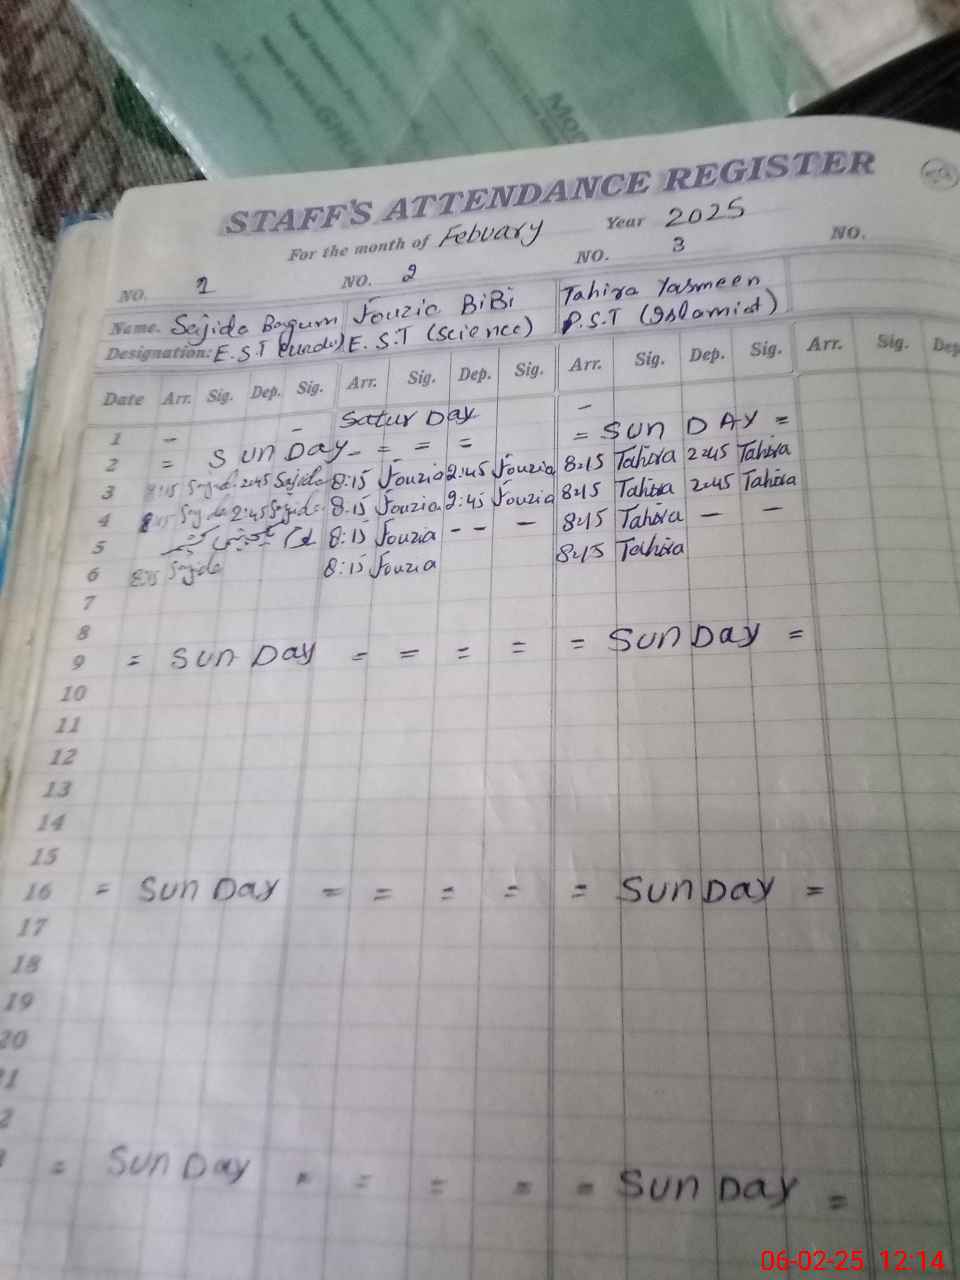 STAFF'S ATTENDANCE REGISTER
For the month of Febuary Year 2025
NO. 1 NO. 2 NO. 3 NO.
Name. Sajida Bagum Fouzia BiBi Tahira Yasmeen
Designation: E.S.T (urdu) E.S.T (Science) P.S.T (Islamiat)
Date Arr. Sig. Dep. Sig. Arr. Sig. Dep. Sig. Arr. Sig. Dep. Sig. Arr. Sig. Dep
1 - - Satur Day -
2 = Sun Day - = = = = SUN DAY =
3 8:15 Sajida 2:45 Sajida 8:15 Fouzia 2:45 Fouzia 8:15 Tahira 2:45 Tahira
4 8:15 Sajida 2:45 Sajida 8:15 Fouzia 2:45 Fouzia 8:15 Tahira 2:45 Tahira
5 8:15 Fouzia - - - 8:15 Tahira - -
6 8:15 Sajida 8:15 Fouzia 8:15 Tahira
7
8
9 = Sun Day = = = = = Sun Day =
10
11
12
13
14
15
16 = Sun Day = = = = = Sun Day =
17
18
19
20
1
2
= Sun Day = = = = = Sun Day =
06-02-25 12:14